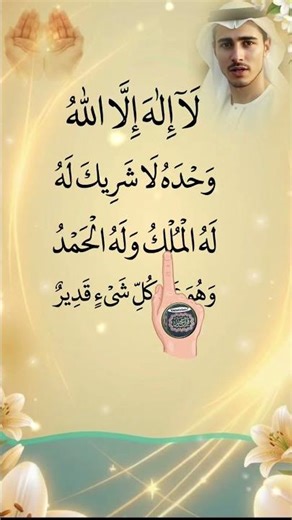 لَآ إِلٰهَ إِلَّا اللّٰهُ
وَحْدَهُ لَا شَرِيكَ لَهُ
لَهُ الْمُلْكُ وَلَهُ الْحَمْدُ
وَهُوَ كُلِّ شَیْءٍ قَدِيرٌ